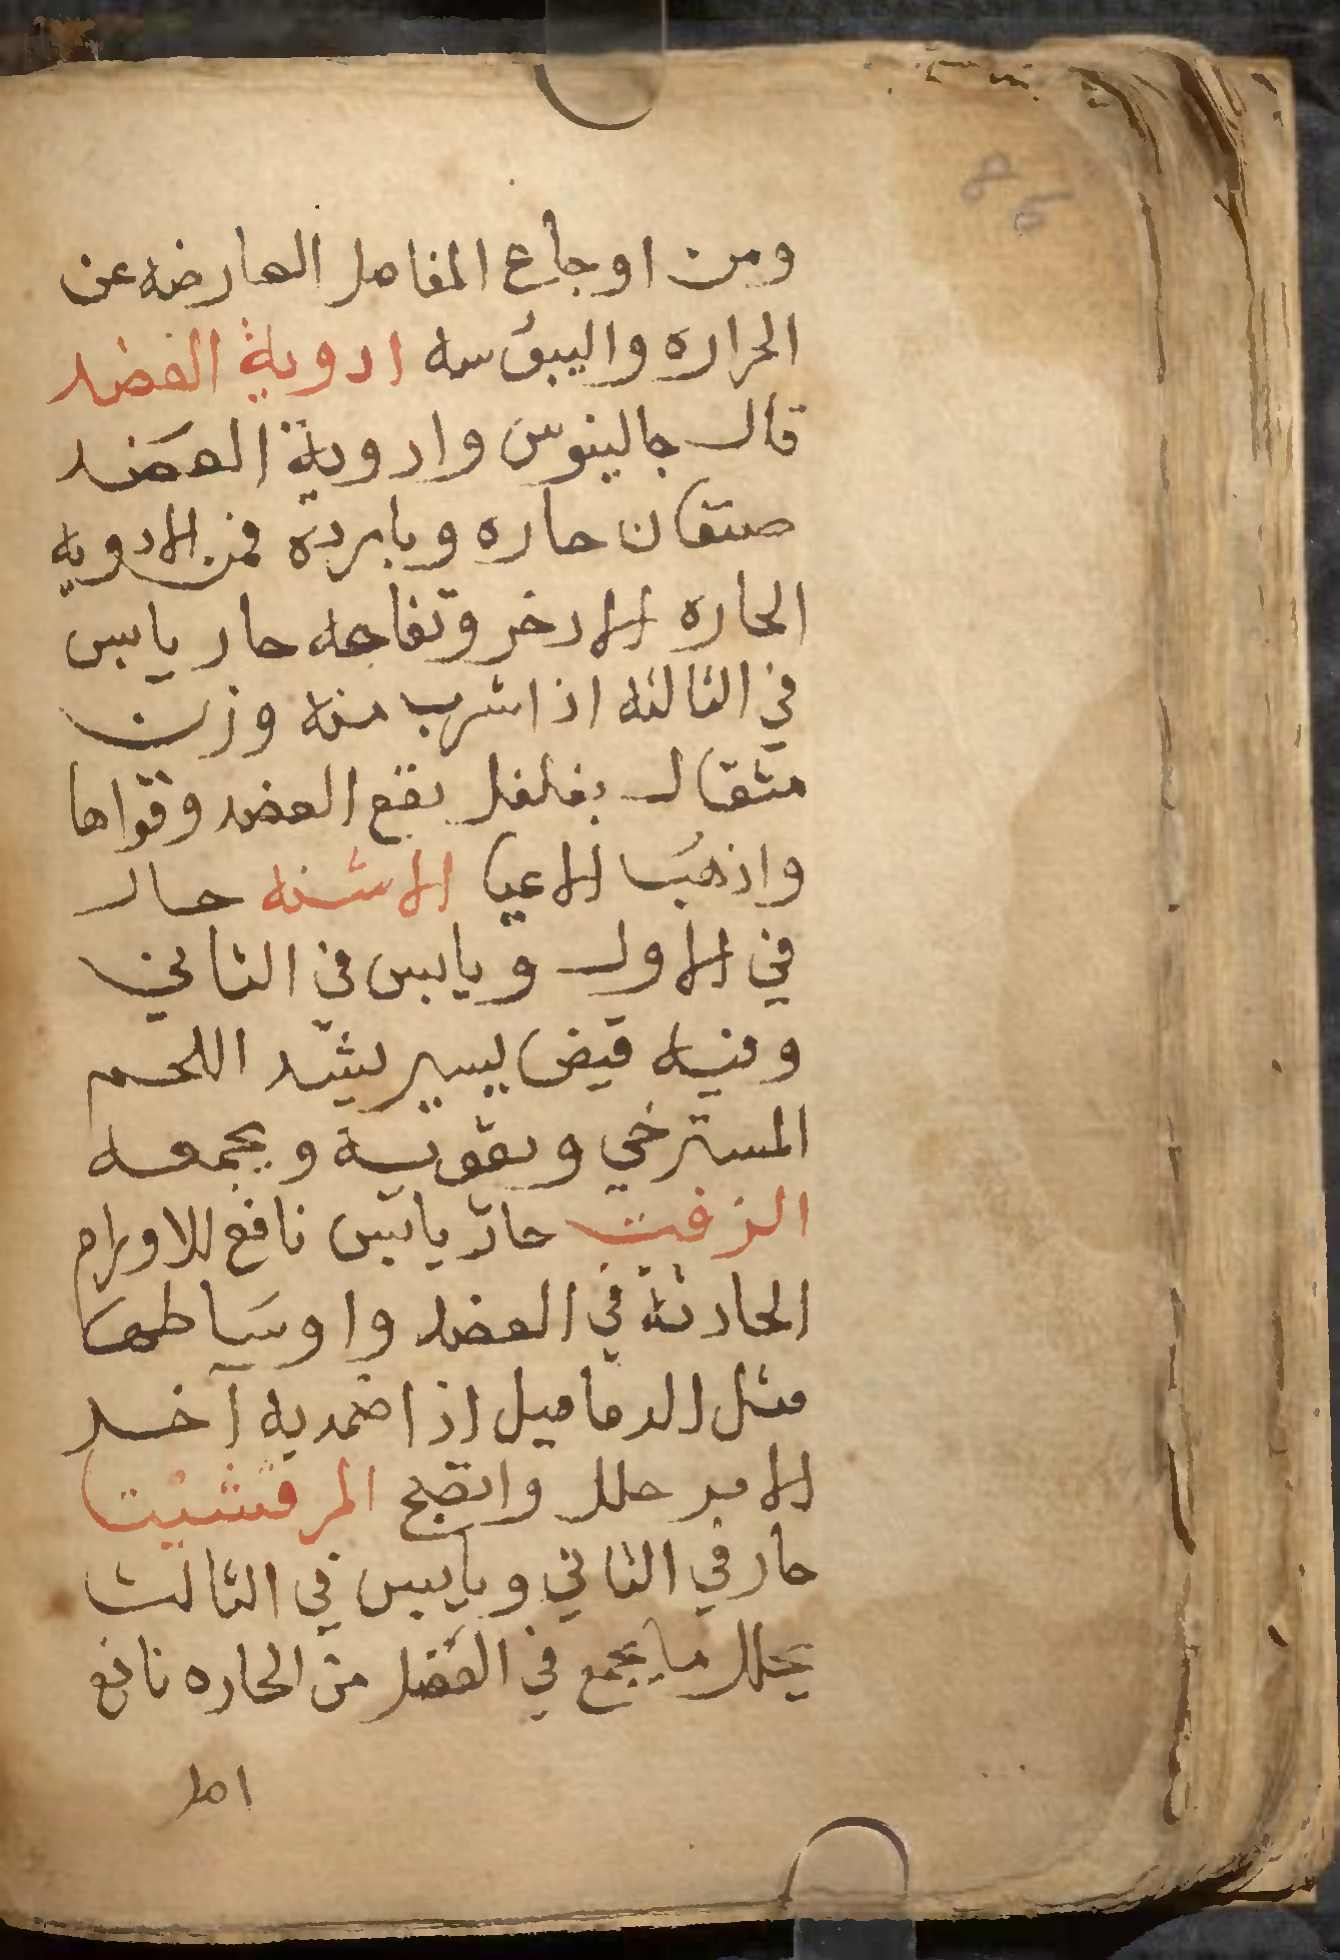 85
ومن اوجاع المفاصل العارضه عن
الحراره واليبوسه ادوية العضد
قال جالينوس وادوية العضد
صنفان حاره وباردة فمن الادويه
الحاره الادخر وتفاحه حار يابس
في الثالثه اذا شرب منه وزن
مثقال بفلفل نفع العضد وقواها
واذهب الاعيا الاشنه حار
في الاول ويابس في الثاني
وفيه قبض يسير يشد اللحم
المسترخي ويقويه ويجمعه
الزفت حار يابس نافع للاورام
الحادثة في العضد واوساطها
مثل الدماميل اذا ضمد به آخر
الامر حلل وانضج المرقشيتا
حار في الثاني ويابس في الثالث
يحلل ما يجمع في العضل من الحاره نافع